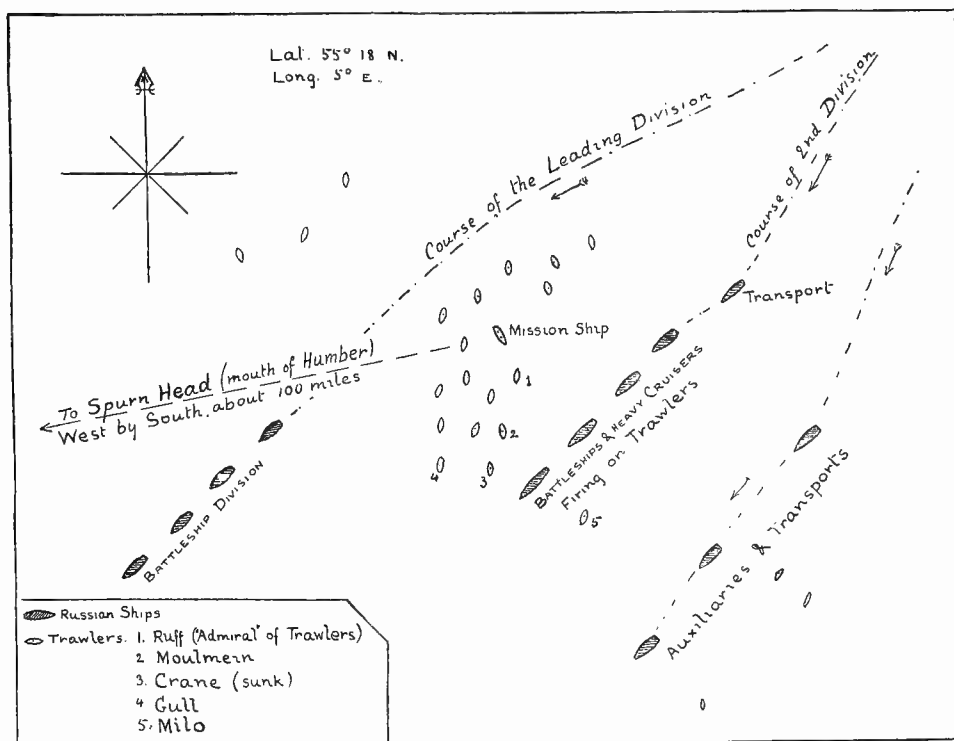 Lat. 55° 18 N.
Long. 5° E.
Course of the Leading Division
Course of 2nd Division
Transport
Mission Ship
To Spurn Head (mouth of Humber)
West by South, about 100 miles
1
2
3
4
5
BATTLESHIPS & HEAVY CRUISERS
Firing on Trawlers
BATTLESHIP DIVISION
Auxiliaries & Transports
Russian Ships
Trawlers. 1. Ruff ("Admiral" of Trawlers)
2 Moulmern
3. Crane (sunk)
4 Gull
5. Milo